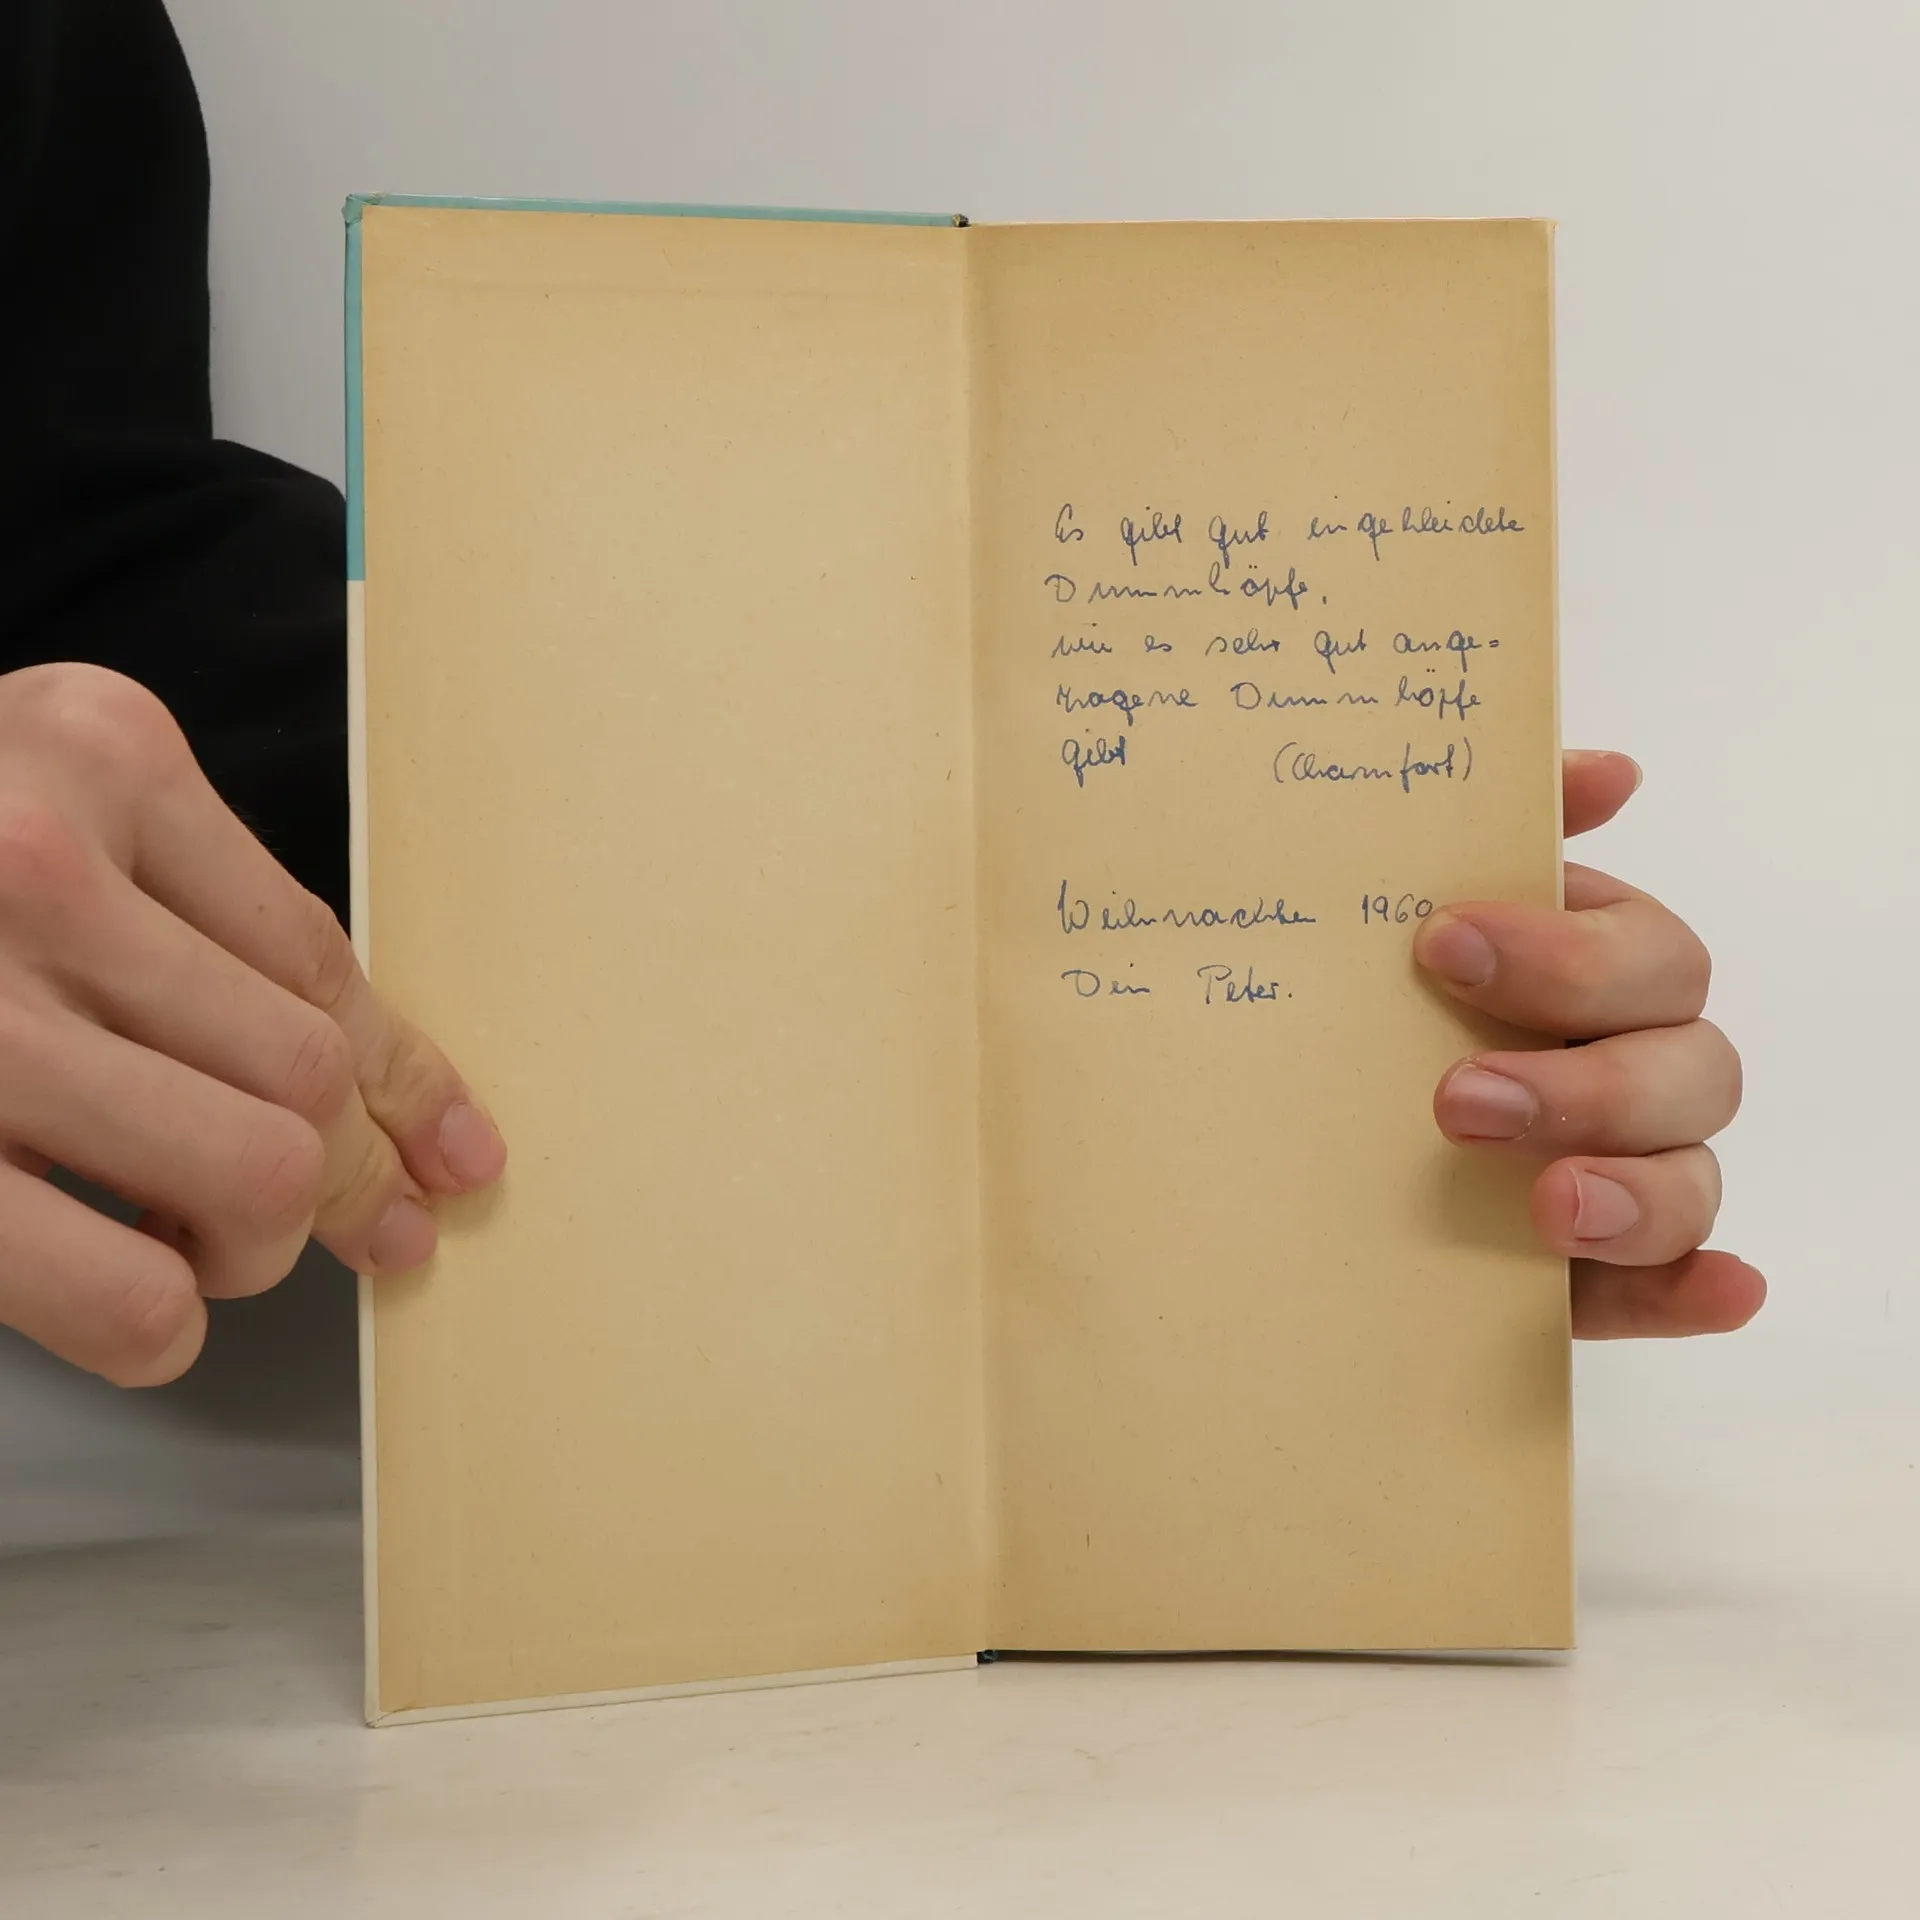 Es gibt gut eingekleidete
Dummköpfe,
wie es sehr gut ange=
zogene Dummköpfe
gibt (Chamfort)
Weihnachten 1960
Dein Peter.